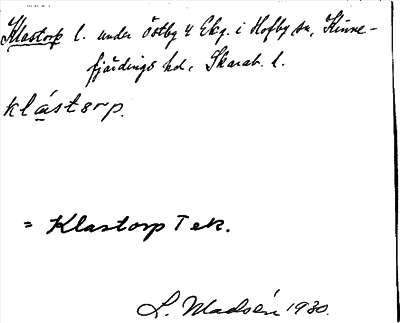 Klastorp l. under Östby 4 Ekg. i Hofby sn, Kinne-
fjärdings hd, Skarab. l.
klástorp.
= Klastorp T ek.
L. Madsén 1930.